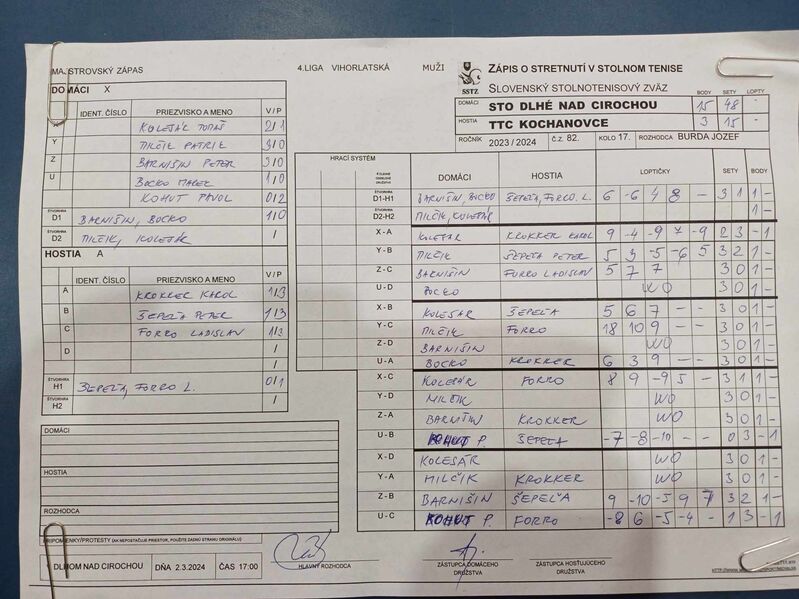 MAJSTROVSKÝ ZÁPAS
4.LIGA VIHORLATSKÁ MUŽI
SSTZ
ZÁPIS O STRETNUTÍ V STOLNOM TENISE
SLOVENSKÝ STOLNOTENISOVÝ ZVÄZ
BODY SETY LOPTY
DOMÁCI STO DLHÉ NAD CIROCHOU 15 48 -
HOSTIA TTC KOCHANOVCE 3 15 -
ROČNÍK 2023 / 2024 č.z 82. KOLO 17. ROZHODCA BURDA JOZEF
DOMÁCI X
IDENT. ČÍSLO PRIEZVISKO A MENO V / P
X KOLESÁR TOMÁŠ 2/1
Y MILČIK PATRIK 3/0
Z BARNIŠIN PETER 3/0
U BOCKO MAREK 1/0
KOHUT PAVOL 0/2
ŠTVORHRA D1 BARNIŠIN, BOCKO 1/0
ŠTVORHRA D2 MILČIK, KOLESÁR /
HOSTIA A
IDENT. ČÍSLO PRIEZVISKO A MENO V / P
A KROKKER KAROL 1/3
B ŠEPEĽA PETER 1/3
C FORRO LADISLAV 1/3
D /
/
ŠTVORHRA H1 ŠEPEĽA, FORRO L. 0/1
ŠTVORHRA H2 /
DOMÁCI
HOSTIA
ROZHODCA
PRIPOMIENKY/PROTESTY (AK NEPOSTAČUJE PRIESTOR, POUŽITE ZADNÚ STRANU ORIGINÁLU)
DLHOM NAD CIROCHOU DŇA 2.3.2024 ČAS 17:00
HRACÍ SYSTÉM
DOMÁCI HOSTIA LOPTIČKY SETY BODY
D1-H1 BARNIŠIN, BOCKO ŠEPEĽA, FORRO L. 6 -6 4 8 - 3 1 1 -
D2-H2 MILČIK, KOLESÁR 1 -
X - A KOLESÁR KROKKER KAROL 9 -4 -9 7 -9 2 3 - 1
Y - B MILČIK ŠEPEĽA PETER 5 3 -5 -6 5 3 2 1 -
Z - C BARNIŠIN FORRO LADISLAV 5 7 7 3 0 1 -
U - D BOCKO WO 3 0 1 -
X - B KOLESÁR ŠEPEĽA 5 6 7 - - 3 0 1 -
Y - C MILČIK FORRO 18 10 9 - - 3 0 1 -
Z - D BARNIŠIN WO 3 0 1 -
U - A BOCKO KROKKER 6 3 9 - - 3 0 1 -
X - C KOLESÁR FORRO 8 9 -9 5 - 3 1 1 -
Y - D MILČIK WO 3 0 1 -
Z - A BARNIŠIN KROKKER WO 3 0 1 -
U - B KOHUT P. ŠEPEĽA -7 -8 -10 - - 0 3 - 1
X - D KOLESÁR WO 3 0 1 -
Y - A MILČIK KROKKER WO 3 0 1 -
Z - B BARNIŠIN ŠEPEĽA 9 -10 -5 9 7 3 2 1 -
U - C KOHUT P. FORRO -8 6 -5 -4 - 1 3 - 1
HLAVNÝ ROZHODCA
ZÁSTUPCA DOMÁCEHO DRUŽSTVA
ZÁSTUPCA HOSŤUJÚCEHO DRUŽSTVA